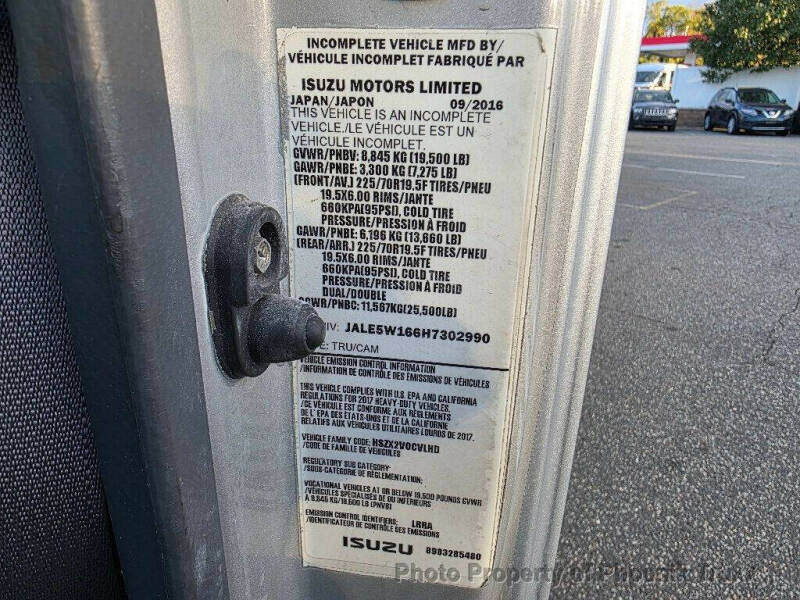 INCOMPLETE VEHICLE MFD BY/
VÉHICULE INCOMPLET FABRIQUÉ PAR
ISUZU MOTORS LIMITED
JAPAN/JAPON 09/2016
THIS VEHICLE IS AN INCOMPLETE
VEHICLE./LE VÉHICULE EST UN
VÉHICULE INCOMPLET.
GVWR/PNBV: 8,845 KG (19,500 LB)
GAWR/PNBE: 3,300 KG (7,275 LB)
(FRONT/AV.) 225/70R19.5F TIRES/PNEU
19.5X6.00 RIMS/JANTE
660KPA(95PSI), COLD TIRE
PRESSURE/PRESSION À FROID
GAWR/PNBE: 6,196 KG (13,660 LB)
(REAR/ARR.) 225/70R19.5F TIRES/PNEU
19.5X6.00 RIMS/JANTE
660KPA(95PSI), COLD TIRE
PRESSURE/PRESSION À FROID
DUAL/DOUBLE
GCWR/PNBC: 11,567KG(25,500LB)
JALE5W166H7302990
TRU/CAM
VEHICLE EMISSION CONTROL INFORMATION
/INFORMATION DE CONTRÔLE DES ÉMISSIONS DE VÉHICULES
THIS VEHICLE COMPLIES WITH U.S. EPA AND CALIFORNIA
REGULATIONS FOR 2017 HEAVY-DUTY VEHICLES.
/CE VÉHICULE EST CONFORME AUX RÈGLEMENTS
DE L' EPA DES ÉTATS-UNIS ET DE LA CALIFORNIE
RELATIFS AUX VÉHICULES UTILITAIRES LOURDS DE 2017.
VEHICLE FAMILY CODE: HSZX2VOCVLHD
/CODE DE FAMILLE DE VÉHICULES
REGULATORY SUB CATEGORY
/SOUS-CATÉGORIE DE RÉGLEMENTATION:
VOCATIONAL VEHICLES AT OR BELOW 19,500 POUNDS GVWR
/VÉHICULES SPÉCIALISÉS DE OU INFÉRIEURS
À 8,845 KG/19,500 LB (PNVB)
EMISSION CONTROL IDENTIFIERS: LRRA
/IDENTIFICATEUR DE CONTRÔLE DES ÉMISSIONS
ISUZU 8983285480
Photo Property of